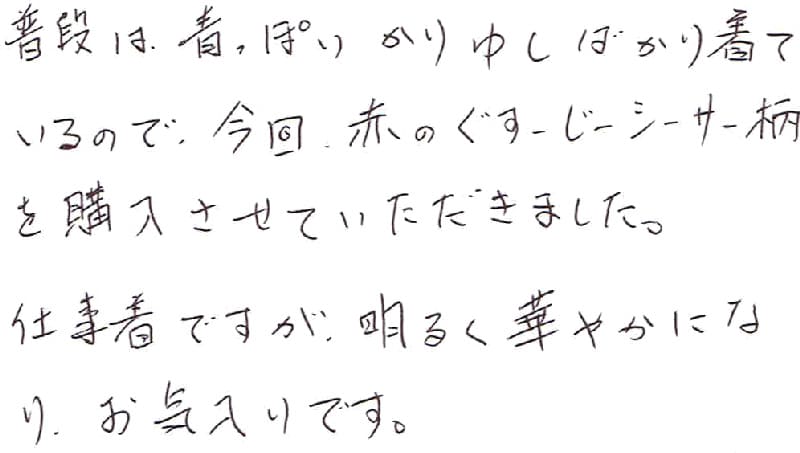 普段は、青っぽいかりゆしばかり着て
いるので、今回、赤のぐすーじーシーサー柄
を購入させていただきました。
仕事着ですが、明るく華やかにな
り、お気入りです。